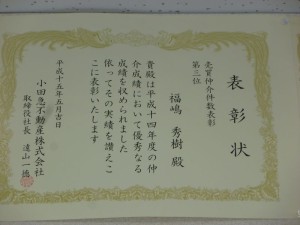 表彰状
売買仲介件数表彰
第三位
福嶋 秀樹 殿
貴殿は平成十四年度の仲
介成績において優秀なる
成績を収められました
依ってその実績を讃えこ
こに表彰いたします
平成十五年五月吉日
小田急不動産株式会社
取締役社長 遠山一徳